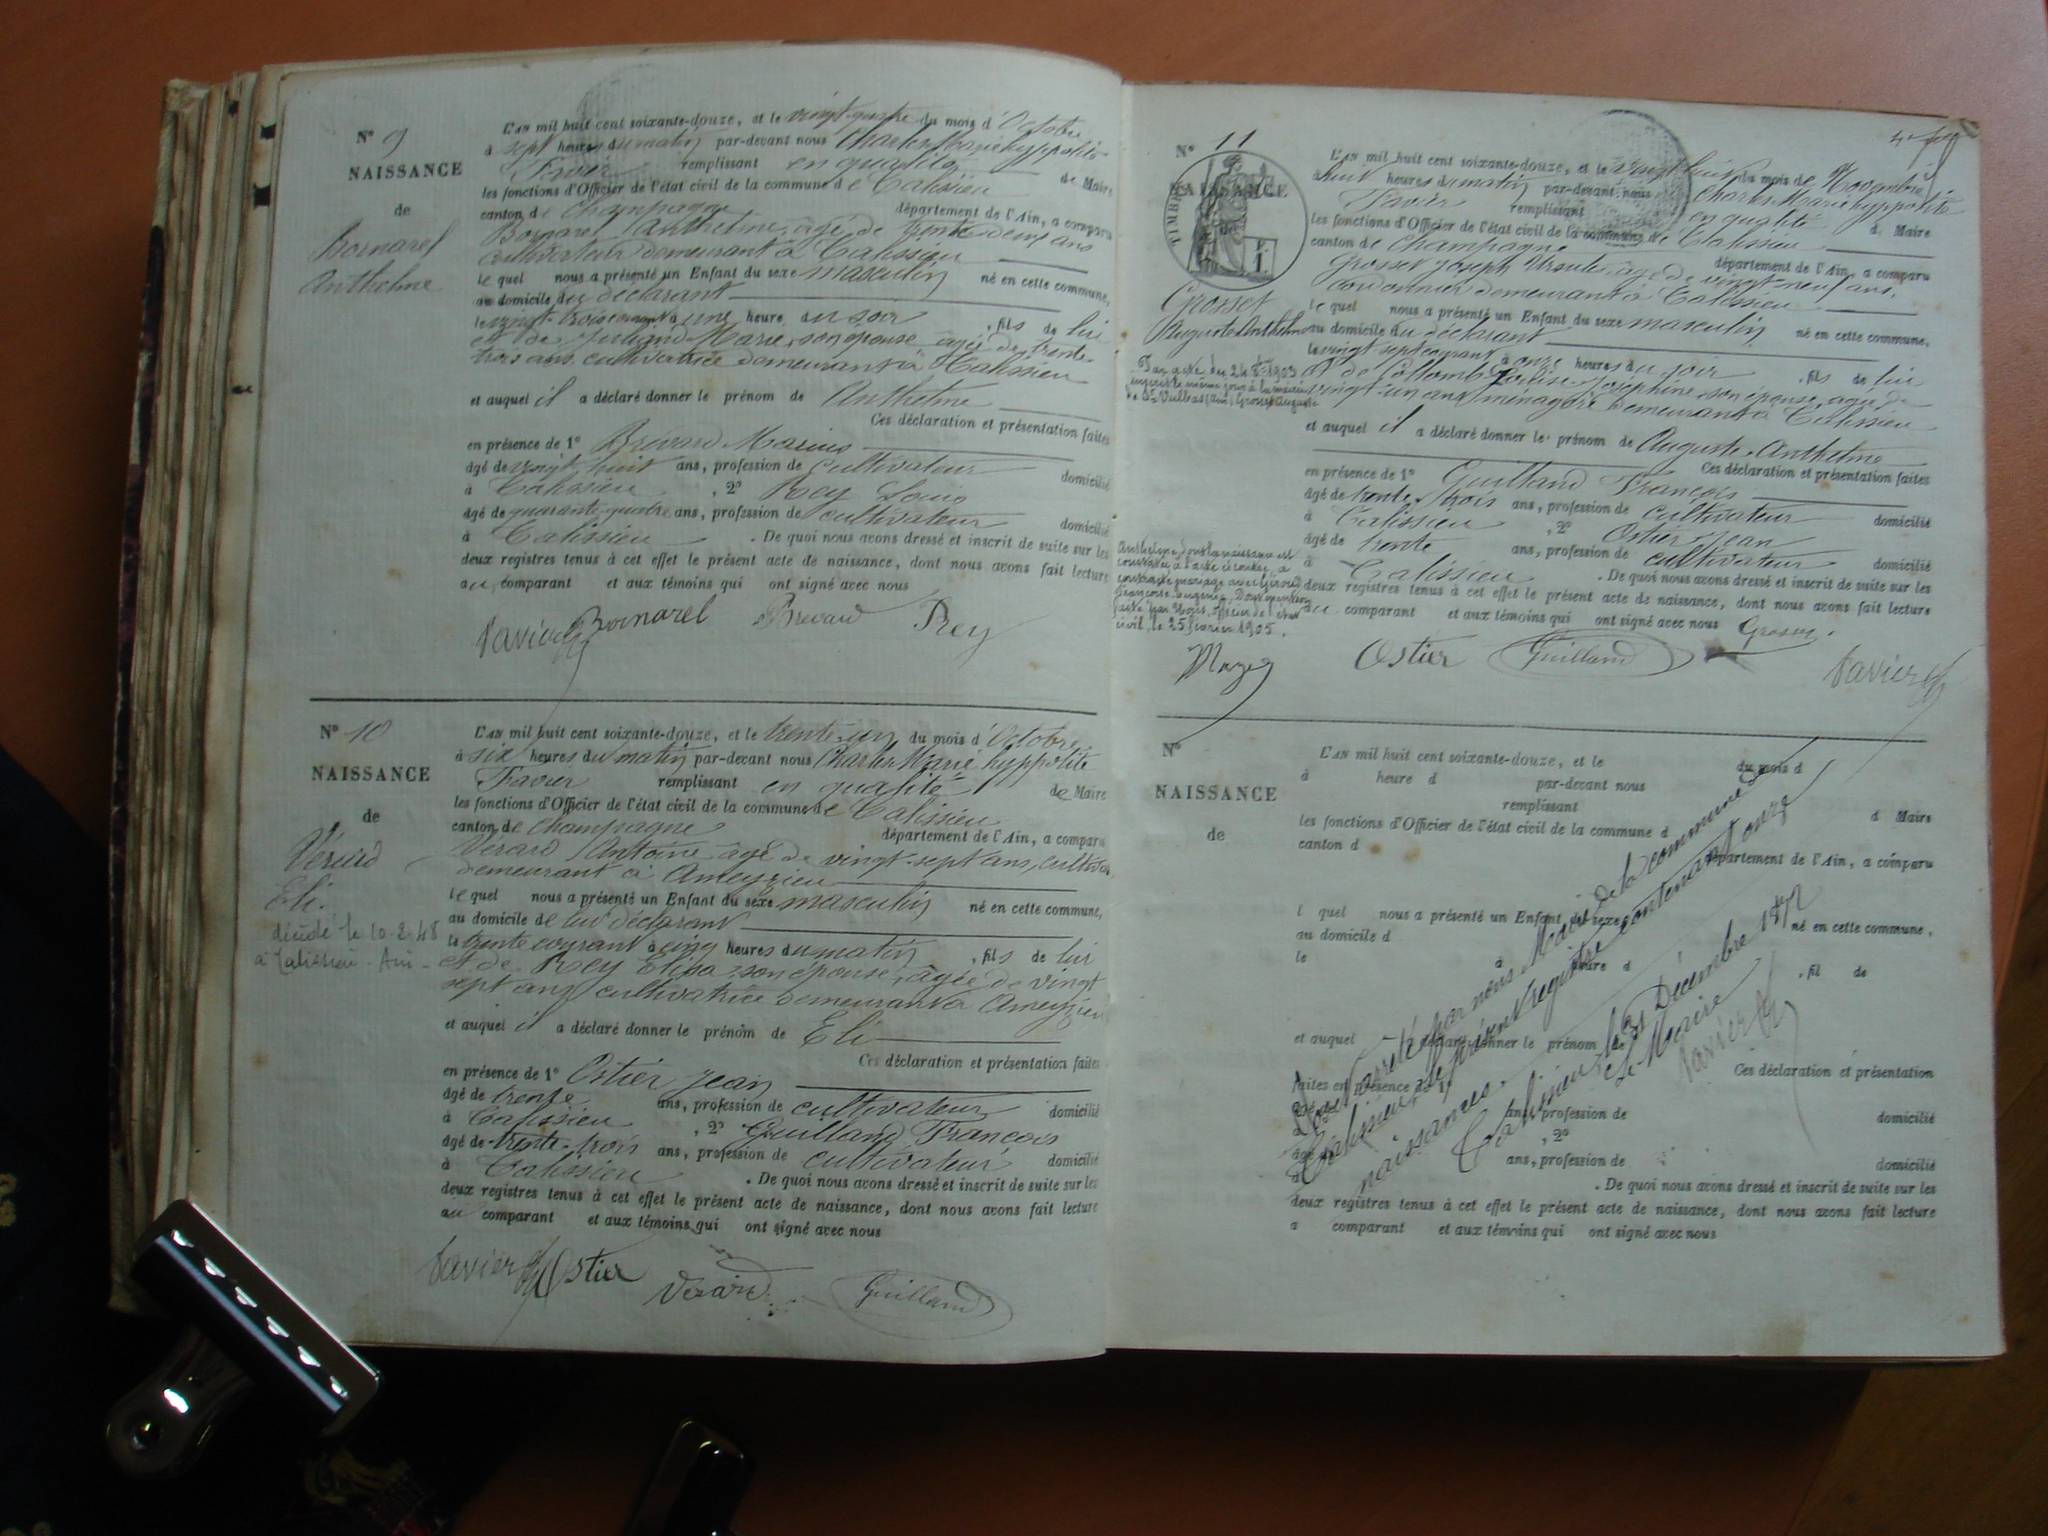 N° 9
NAISSANCE
de
Bornarel
Anthelme
L'AN mil huit cent soixante-douze, et le vingt-quatre du mois d'Octobre
à sept heures du matin par-devant nous Charles Marie hyppolite
Favier remplissant en qualité de Maire
les fonctions d'Officier de l'état civil de la commune de Talissieu
canton de Champagne département de l'Ain, a comparu
Bornarel Anthelme, âgé de trente deux ans
cultivateur demeurant à Talissieu
le quel nous a présenté un Enfant du sexe masculin né en cette commune,
au domicile du déclarant
le vingt-trois courant à une heure du soir, fils de lui
et de Marie, son épouse âgée de trente-
trois ans, cultivatrice demeurant à Talissieu
et auquel il a déclaré donner le prénom de Anthelme
Ces déclaration et présentation faites
en présence de 1° Brévard Marius
âgé de vingt huit ans, profession de cultivateur domicilié
à Talissieu, 2° Rey Louis
âgé de quarante-quatre ans, profession de cultivateur domicilié
à Talissieu. De quoi nous avons dressé et inscrit de suite sur les
deux registres tenus à cet effet le présent acte de naissance, dont nous avons fait lecture
au comparant et aux témoins qui ont signé avec nous
Favier Bornarel Brevard Rey
N° 10
NAISSANCE
de
Verard
Eli.
décédé le 10-2-48
à Talissieu - Ain -
L'AN mil huit cent soixante-douze, et le trente-un du mois d'Octobre
à six heures du matin par-devant nous Charles Marie hyppolite
Favier remplissant en qualité de Maire
les fonctions d'Officier de l'état civil de la commune de Talissieu
canton de Champagne département de l'Ain, a comparu
Verard Antoine âgé de vingt-sept ans, cultiva
demeurant à Ameyzieu
le quel nous a présenté un Enfant du sexe masculin né en cette commune,
au domicile de lui déclarant
le trente courant à cinq heures du matin, fils de lui
et de Rey Elisa son épouse, âgée de vingt
sept ans cultivatrice demeurant à Ameyzieu
et auquel il a déclaré donner le prénom de Eli
Ces déclaration et présentation faites
en présence de 1° Ostier Jean
âgé de trente ans, profession de cultivateur domicilié
à Talissieu, 2° Guilland François
âgé de trente-trois ans, profession de cultivateur domicilié
à Talissieu. De quoi nous avons dressé et inscrit de suite sur les
deux registres tenus à cet effet le présent acte de naissance, dont nous avons fait lecture
au comparant et aux témoins qui ont signé avec nous
Favier Ostier Verard Guilland
N° 11
NAISSANCE
TIMBRE
Grosset
Auguste Anthelme
Par acte du 24 8bre 1903
inscrit le même jour à la mairie
Anthelme, dont la naissance est
constatée à l'acte ci-contre, a
contracté mariage avec
Françoise Eugénie
officier de l'état
civil, le 25 février 1905.
L'AN mil huit cent soixante-douze, et le vingt huit du mois de Novembre
à huit heures du matin par-devant nous Charles Marie hyppolite
Favier remplissant en qualité d Maire
les fonctions d'Officier de l'état civil de la commune de Talissieu
canton de Champagne département de l'Ain, a comparu
Grosset Joseph Ursule, âgé de vingt neuf ans,
cordonnier demeurant à Talissieu
le quel nous a présenté un Enfant du sexe masculin né en cette commune,
au domicile du déclarant
le vingt sept courant à onze heures du soir, fils de lui
et de Collomb Louise Joséphine son épouse, âgée de
vingt-un ans ménagère demeurant à Talissieu
et auquel il a déclaré donner le prénom de Auguste Anthelme
Ces déclaration et présentation faites
en présence de 1° Guilland François
âgé de trente-trois ans, profession de cultivateur domicilié
à Talissieu, 2° Ostier Jean
âgé de trente ans, profession de cultivateur domicilié
à Talissieu. De quoi nous avons dressé et inscrit de suite sur les
deux registres tenus à cet effet le présent acte de naissance, dont nous avons fait lecture
au comparant et aux témoins qui ont signé avec nous Grosset.
Ostier Guilland Favier
N°
NAISSANCE
de
L'AN mil huit cent soixante-douze, et le du mois d
à heure d par-devant nous
remplissant d Maire
les fonctions d'Officier de l'état civil de la commune d
canton d département de l'Ain, a comparu
l quel nous a présenté un Enfant du sexe né en cette commune,
au domicile d
le à heure d , fil de
et auquel déclaré donner le prénom de
Ces déclaration et présentation
faites en présence de
âgé de ans, profession de domicilié
à , 2°
âgé de ans, profession de domicilié
à . De quoi nous avons dressé et inscrit de suite sur les
deux registres tenus à cet effet le présent acte de naissance, dont nous avons fait lecture
a comparant et aux témoins qui ont signé avec nous
arrêté par nous Maire de la commune de
Talissieu, le présent registre contenant onze
naissances.
Talissieu le 31 Décembre 1872
Le Maire
Favier